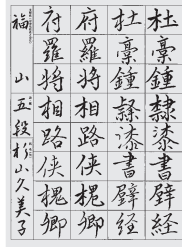 杜稾鍾隷漆書壁経
杜稾鍾隷漆書壁経
府羅将相路侠槐卿
府羅将相路侠槐卿
福山 五段 杉山久美子